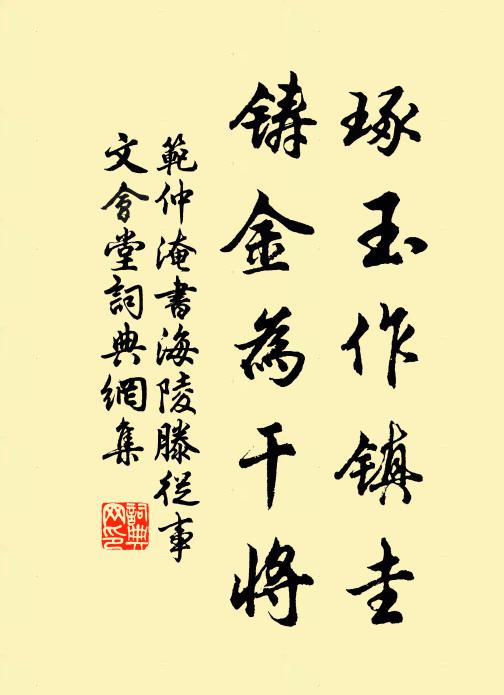 琢玉作鎮圭
鑄金為干將
範仲淹書海陵滕從事
文會堂詞典網集
詞典網印